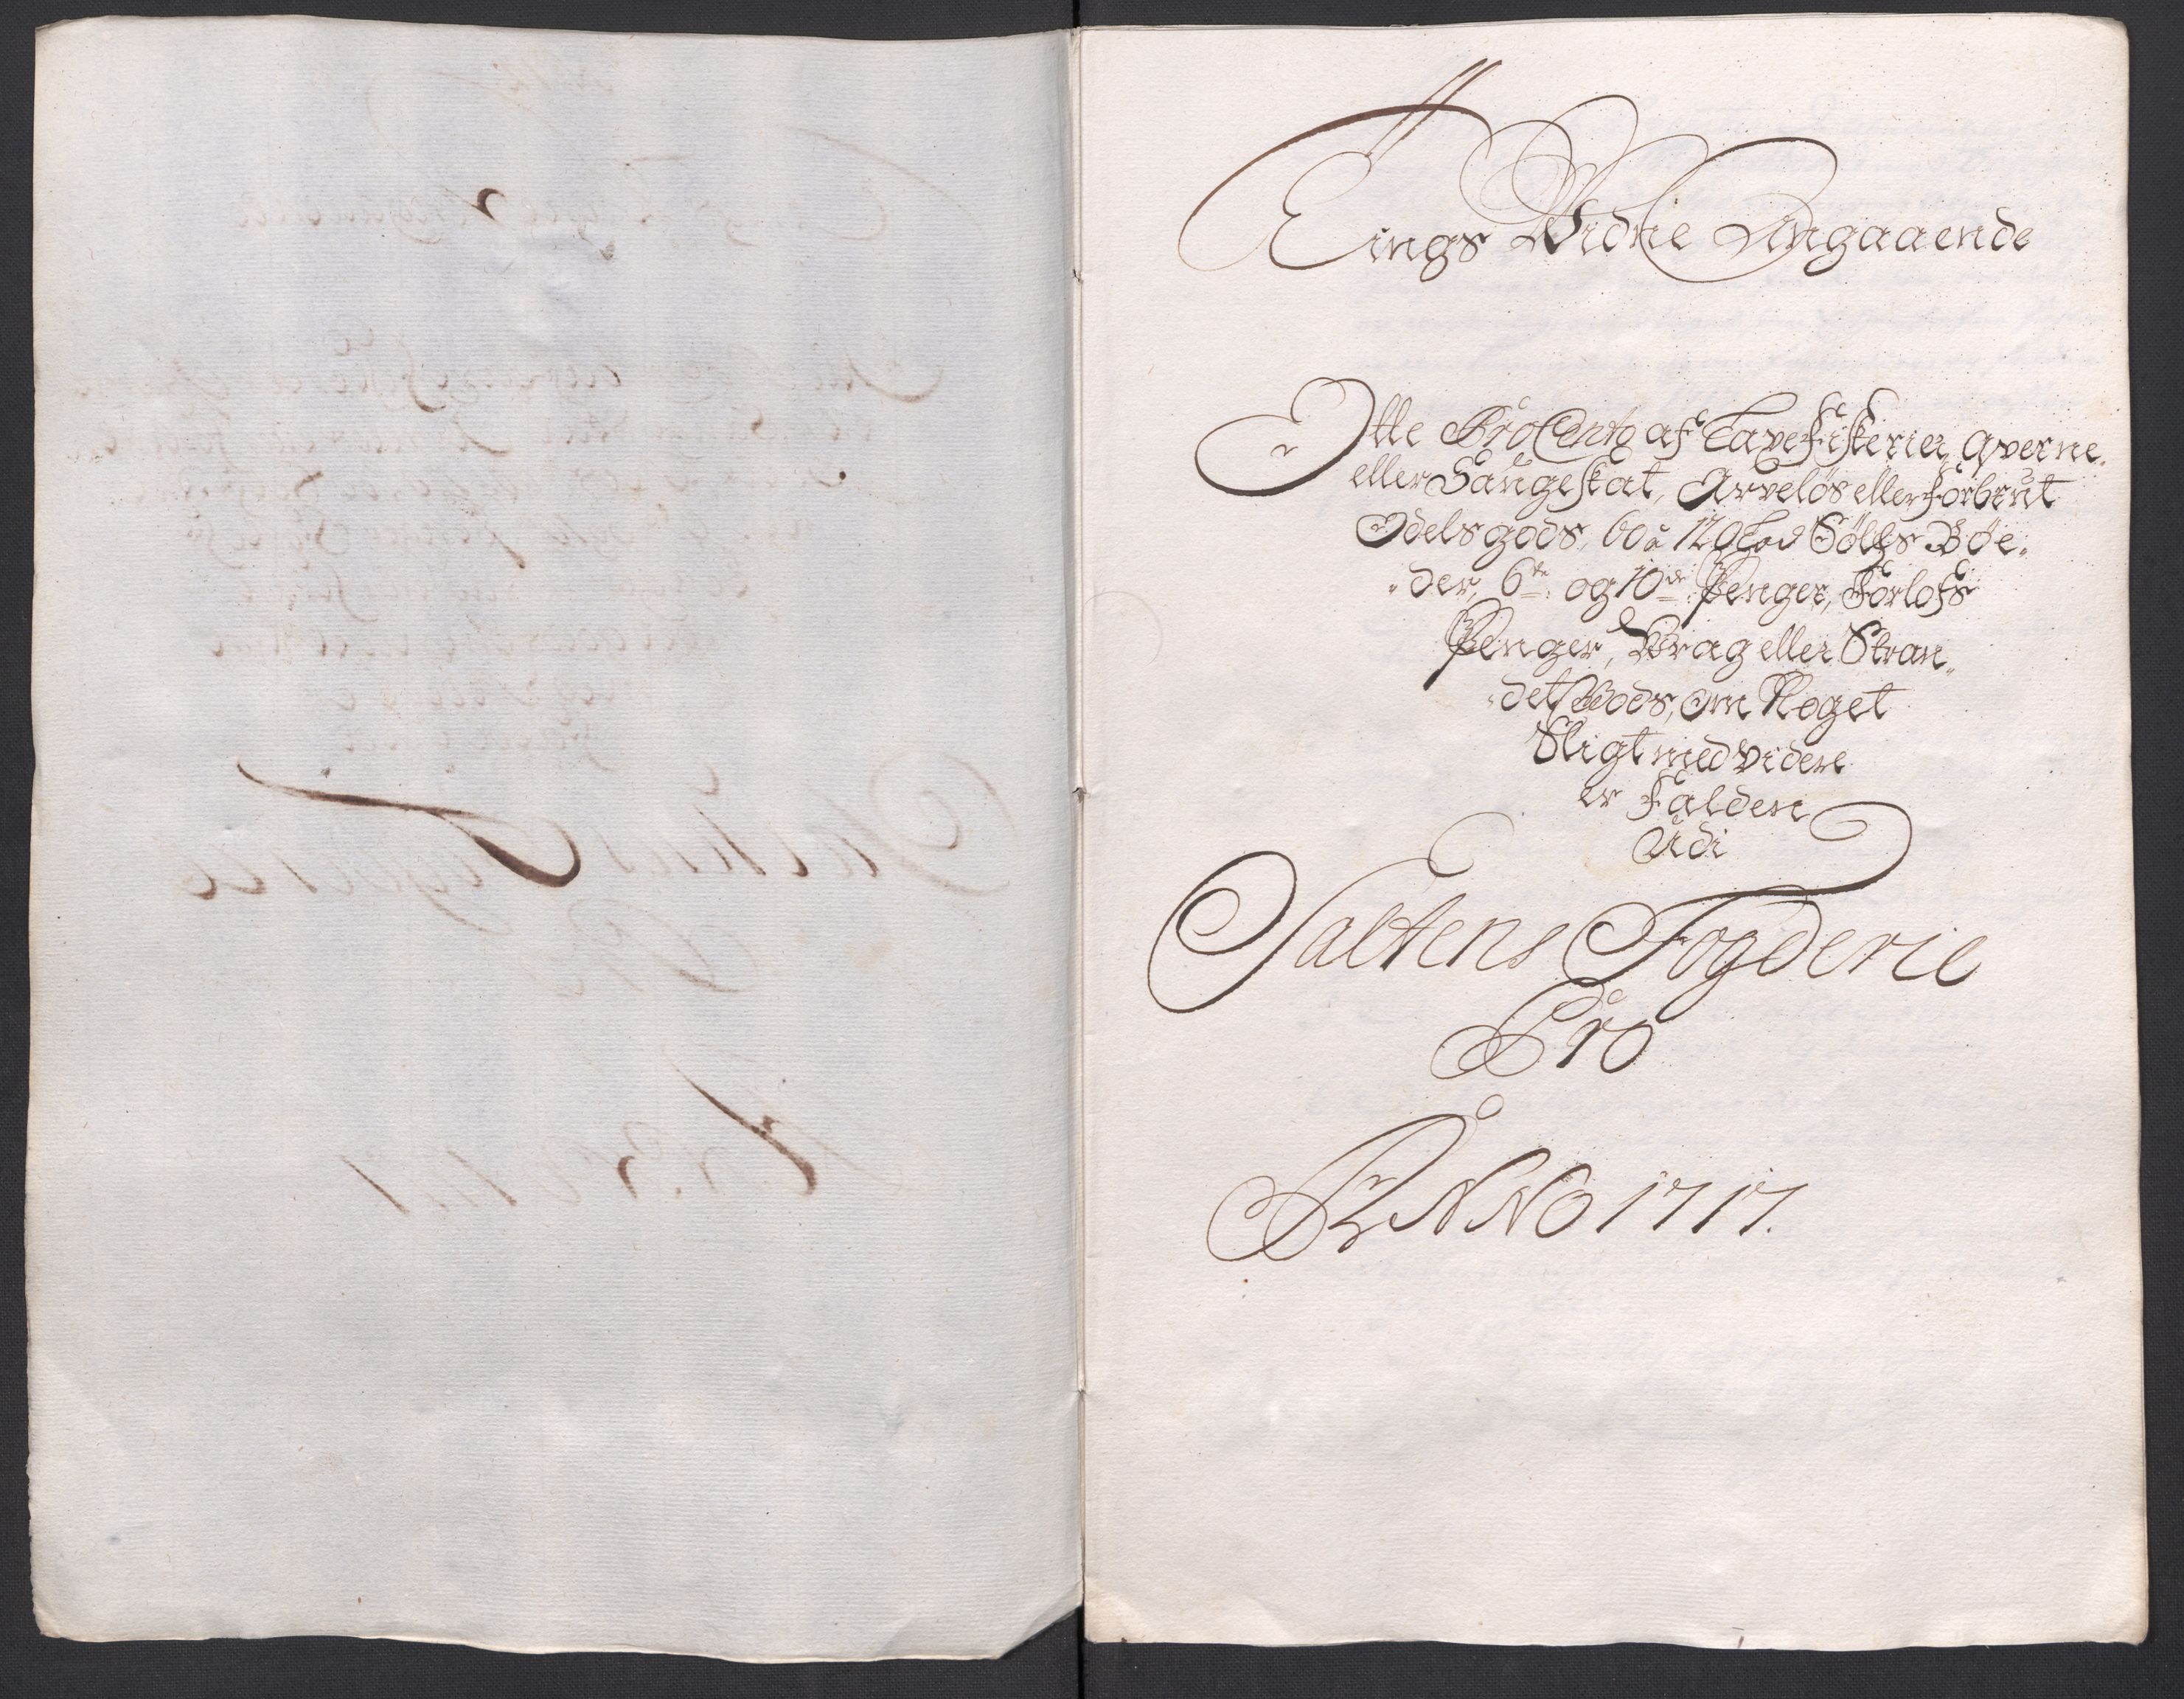 Tings Vidne Angaaende
Otte ProCento af Laxefiskerier, Qverne
eller Saugeskat, Arveløs eller Forbrut
Odelsgods, 60 a 120 Lod Sølfs Bøe„
„der, 6te og 10de Penger, Forlofs
Penger, Vrag eller Stran„
„det Gods, om Noget
Sligt med videre
er Falden
Udi
Saltens Fogderie
Pro
ANNO 1717.